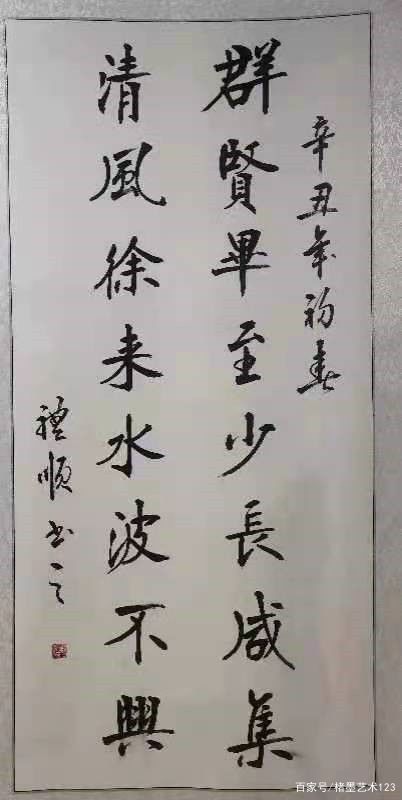 辛丑年初春
群賢畢至少長咸集
清風徐来水波不興
禮順书之
百家号/楮墨艺术123